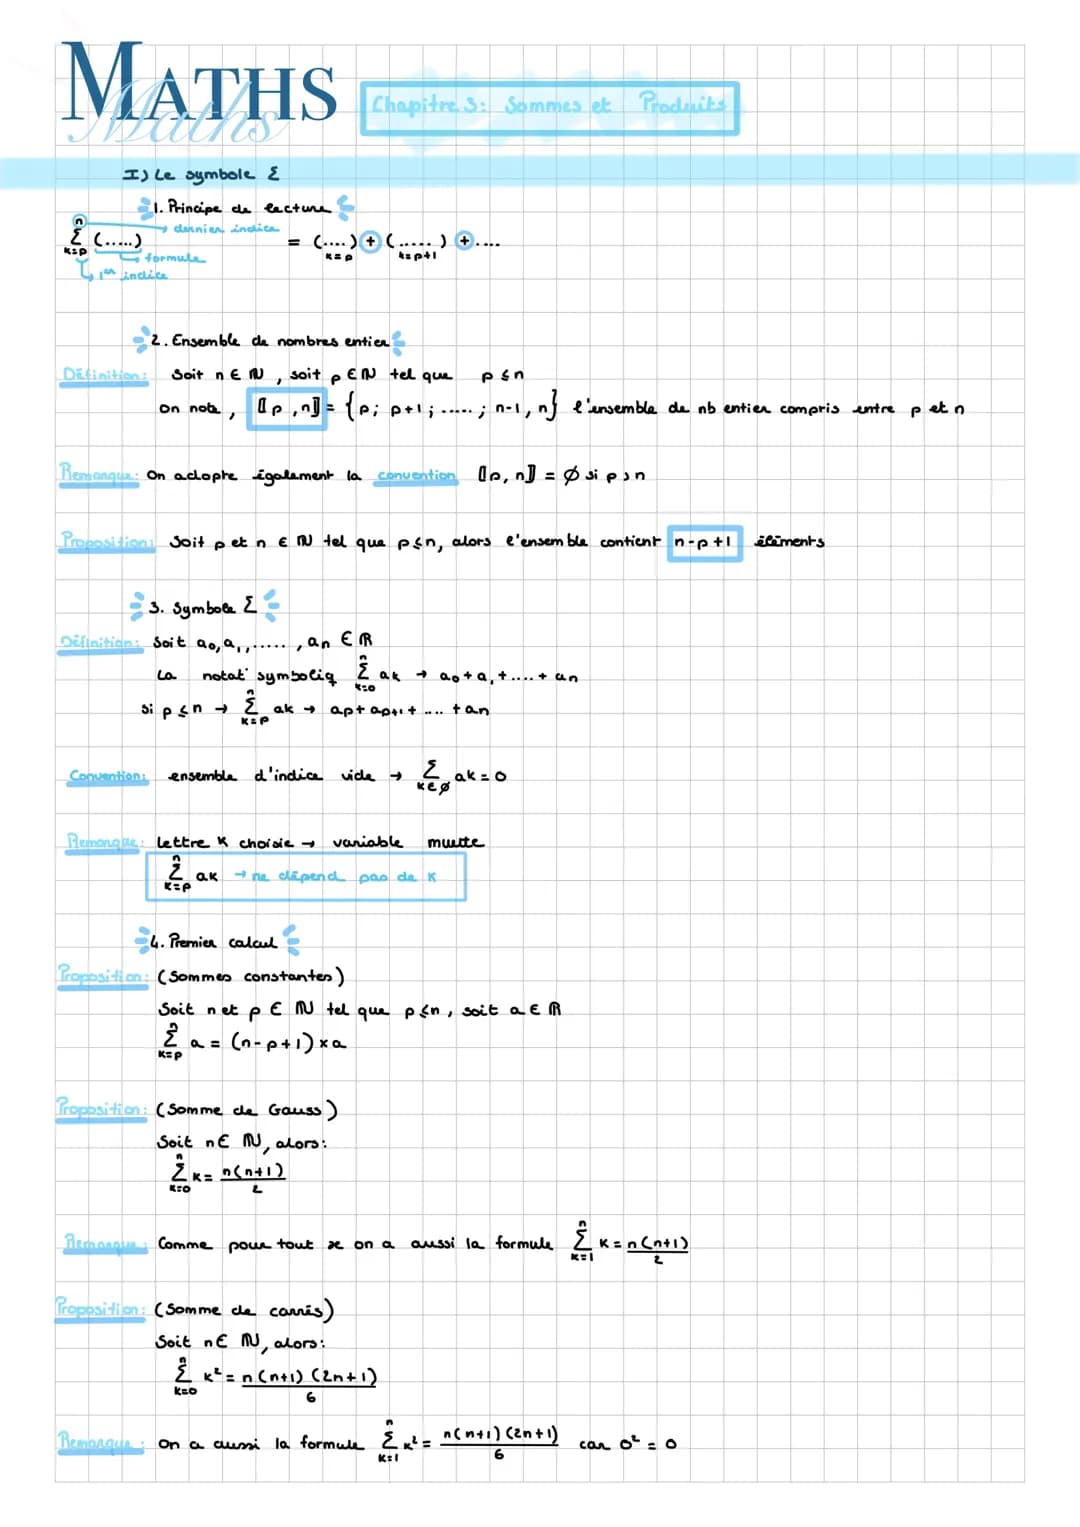 MATHS
Maths
Chapitre 3: Sommes et Produits
I) Le symbole Σ
1. Principe de lecture
n → dernier indice
Σ (.....) = (....) + (.....) + ....
k=p → formule k=p k=p+1
↳ 1er indice
2. Ensemble de nombres entier
Définition: Soit n ∈ ℕ, soit p ∈ ℕ tel que p ≤ n
on note, ⟦p, n⟧ = {p; p+1; .....; n-1, n} l'ensemble de nb entier compris entre p et n
Remarque: On adopte également la convention ⟦p, n⟧ = ∅ si p > n
Proposition: Soit p et n ∈ ℕ tel que p ≤ n, alors l'ensemble contient n-p+1 éléments
3. Symbole Σ
Définition: Soit a₀, a₁, ....., aₙ ∈ ℝ
La notat° symboliq Σ_{k=0}^{n} ak → a₀ + a₁ + .... + an
si p ≤ n → Σ_{k=p}^{n} ak → ap + ap+1 + .... + an
Convention: ensemble d'indice vide → Σ_{k∈∅} ak = 0
Remarque: lettre k choisie → variable muette
Σ_{k=p}^{n} ak → ne dépend pas de k
4. Premier calcul
Proposition: (Sommes constantes)
Soit n et p ∈ ℕ tel que p ≤ n, soit a ∈ ℝ
Σ_{k=p}^{n} a = (n-p+1) × a
Proposition: (Somme de Gauss)
Soit n ∈ ℕ, alors:
Σ_{k=0}^{n} k = n(n+1)/2
Remarque: Comme pour tout x on a aussi la formule Σ_{k=1}^{n} k = n(n+1)/2
Proposition: (Somme de carrés)
Soit n ∈ ℕ, alors:
Σ_{k=0}^{n} k² = n(n+1)(2n+1)/6
Remarque: On a aussi la formule Σ_{k=1}^{n} k² = n(n+1)(2n+1)/6 car 0² = 0